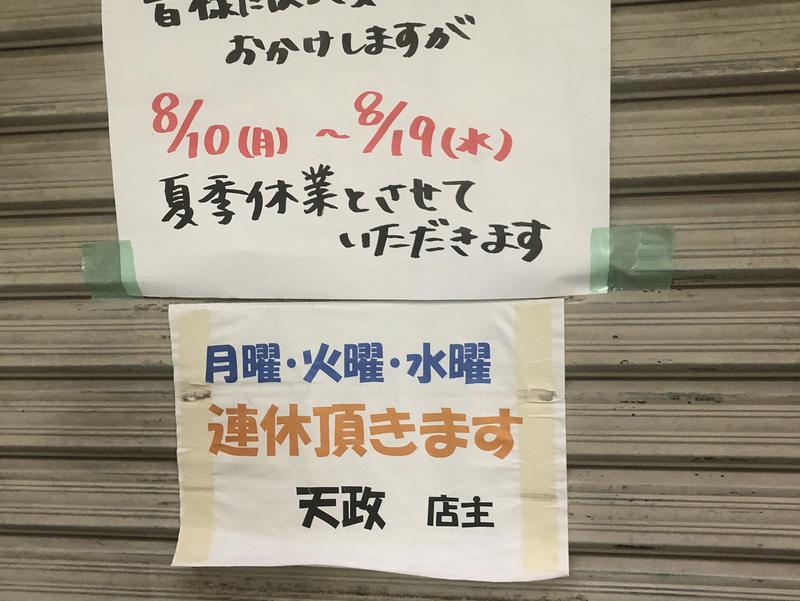 おかけしますが
8/10(月)～8/19(水)
夏季休業とさせて
いただきます
月曜・火曜・水曜
連休頂きます
天政 店主